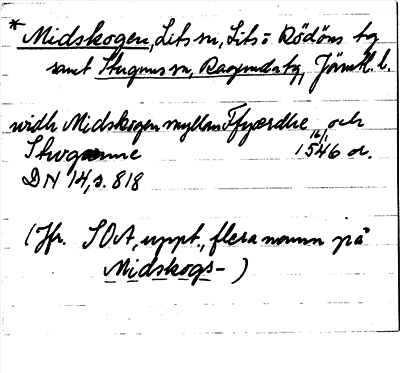 * Midskogen, Lits sn, Lits o Rödöns tg
samt Stuguns sn, Ragunda tg, Jämtl. l.
widh Midskogen myllan Ffyærdhe och
16/1
Stugunne 1546 or.
DN 14, s. 818
(Jfr. SOA, uppt., flera namn på
Midskogs- )